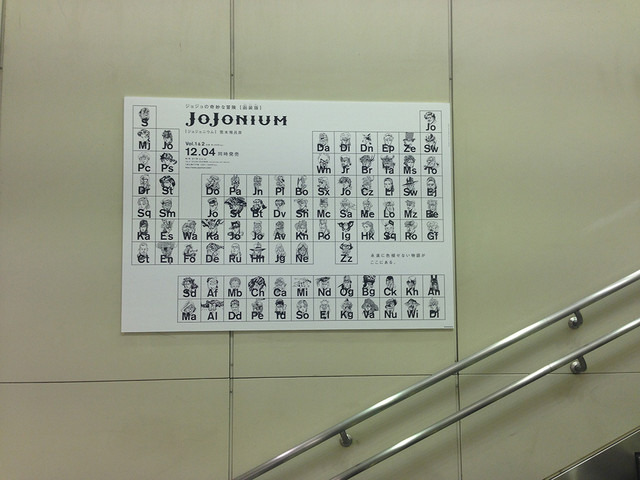 ジョジョの奇妙な冒険 [函装版]
JOJONIUM
[ジョジョニウム] 荒木飛呂彦
Vol.1&2
12.04 同時発売
S Jo
Mj Jo Da Di Dn Ep Ze Sw
Pc Ps Wn Jr Br Ta Ms To
Dr St Do Pa Jn Pl Bo Sx Jo Cz Ef Sw Bj
Sq Sm Jo Sy Bt Dv Sh Mc Sa Me Lo Mz Be
Ka Es Wa Ka Jo Jo Av Kn Po Ig Hk Sq Ro Gf
Ct En Fo De Ru Hh Jg Ne Zz
永遠に色褪せない物語が
ここにある。
Sd Af Mb Ch Ca Mi Nd Og Bg Ck Kh An
Ma Al Dd Pe Id So El Kg Va Nu Wi Di